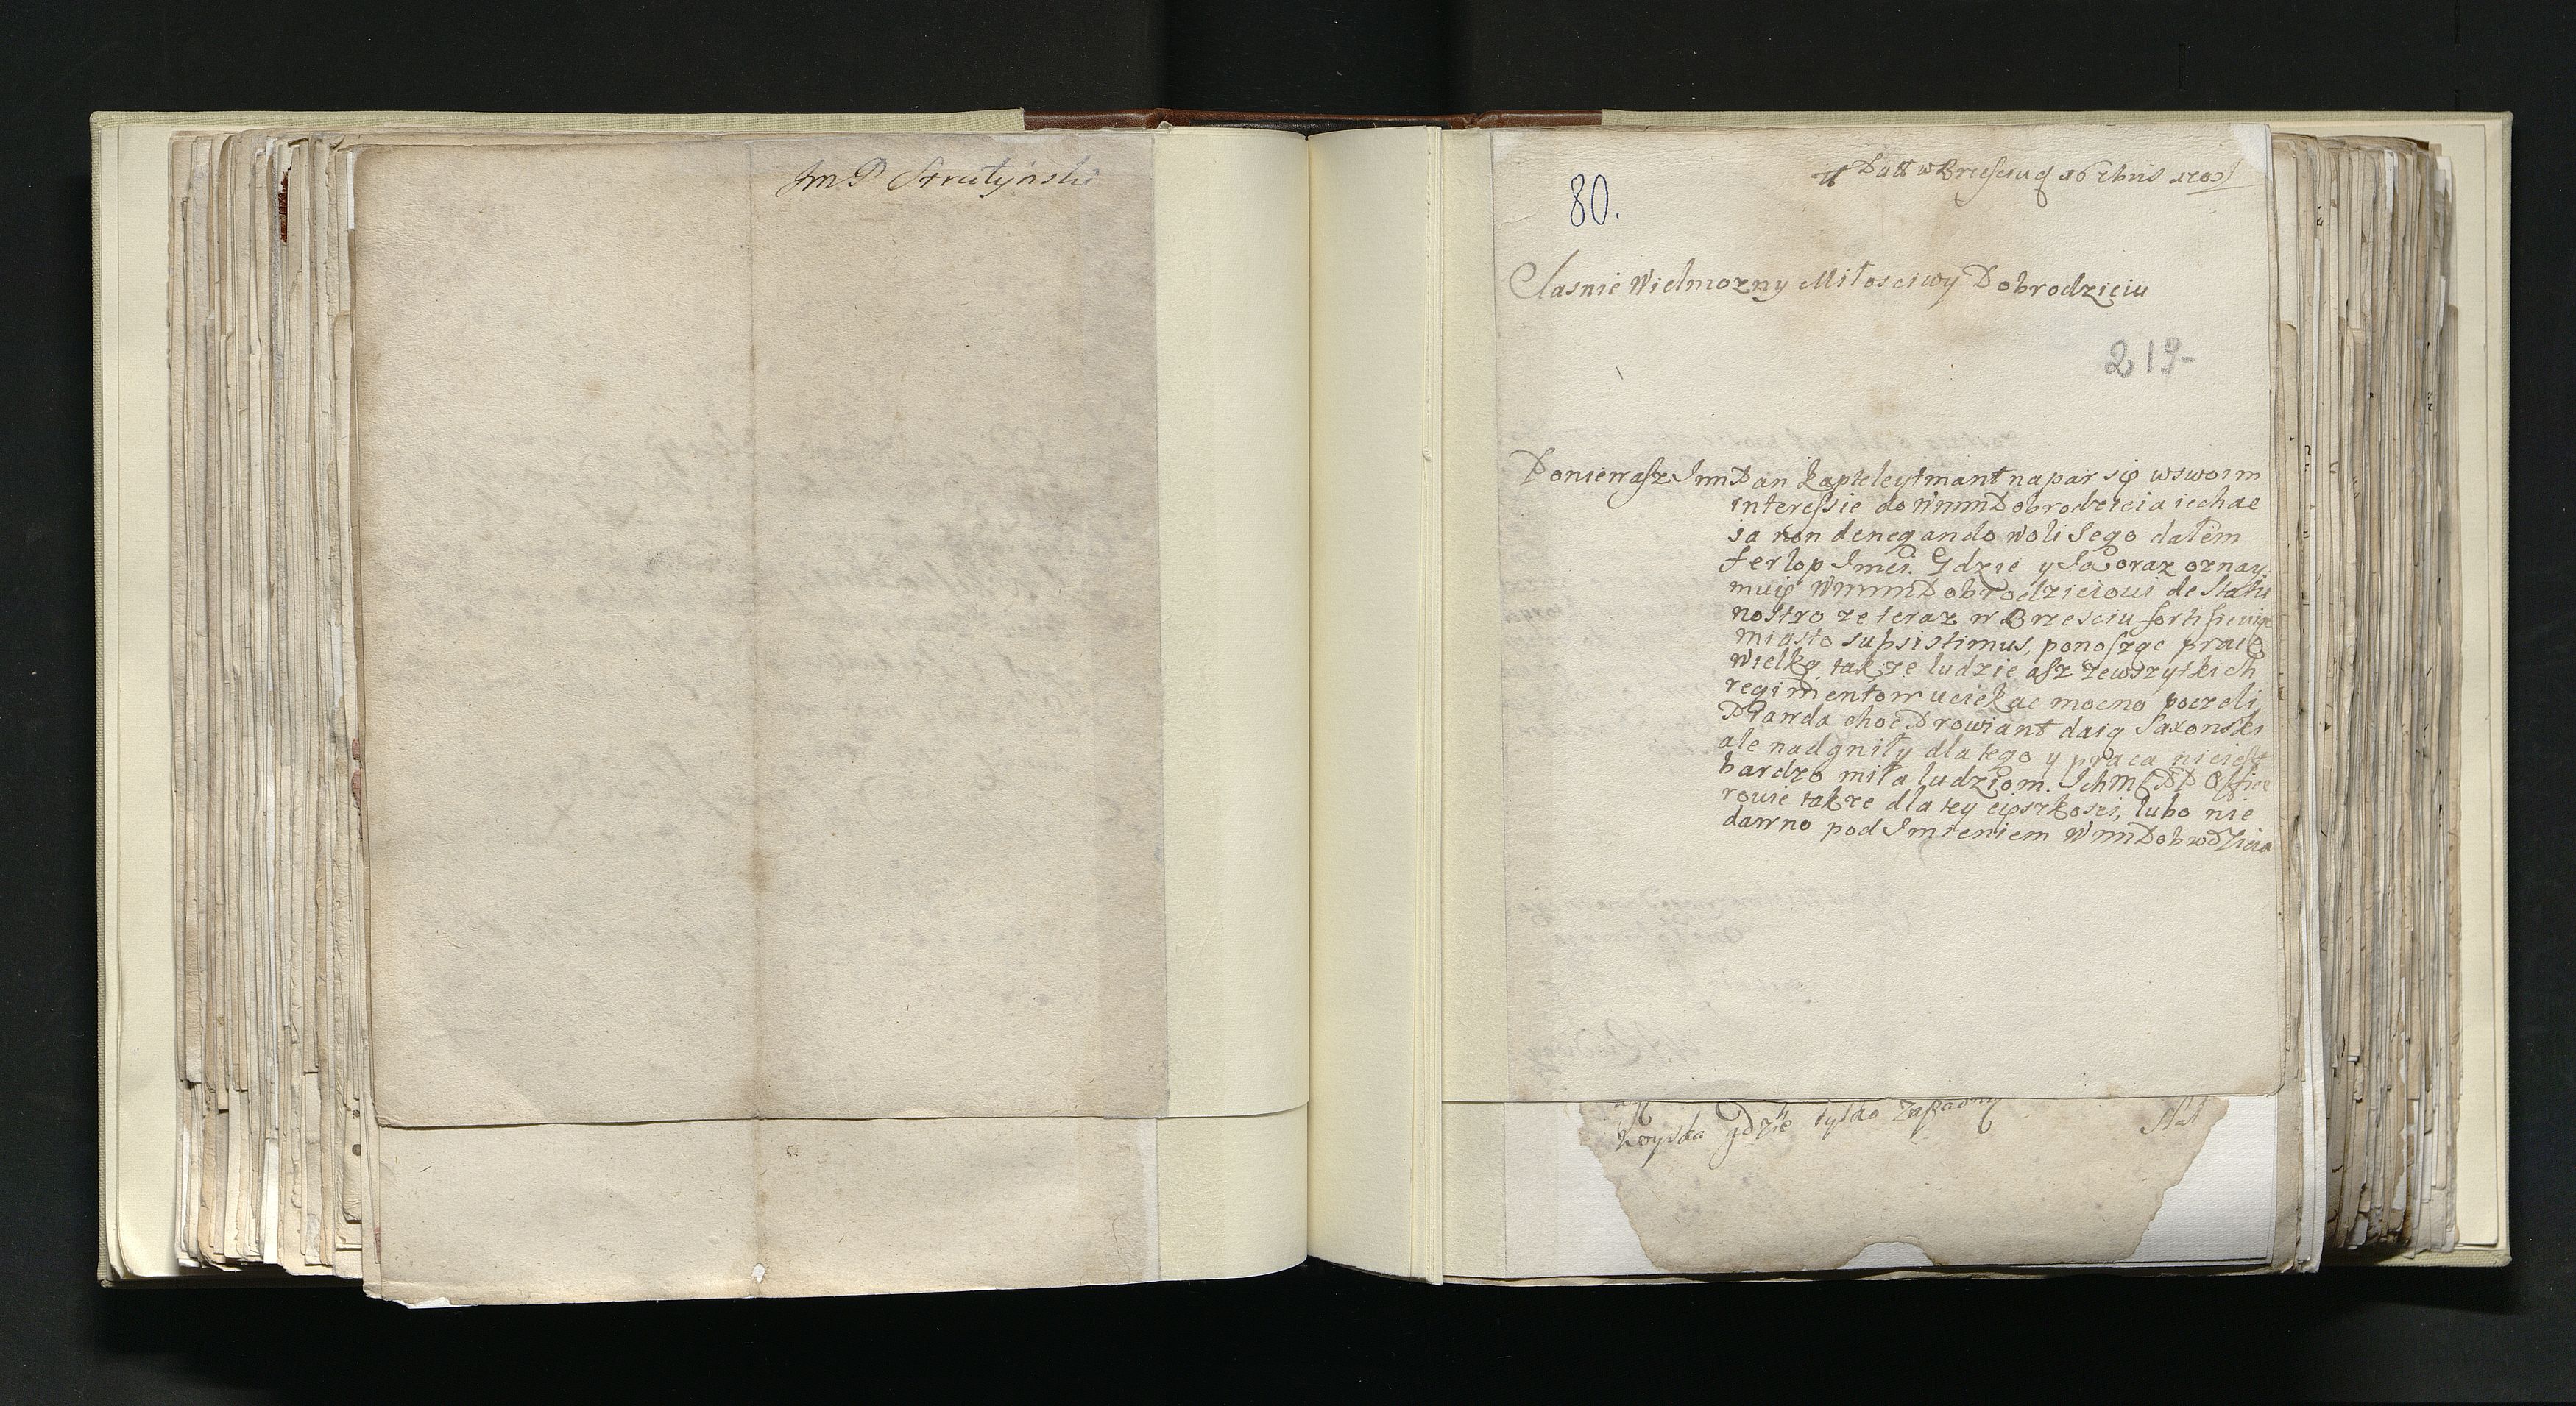 Jm P Strutyński
80.
Datt w Brzesciu d 16 7bris 1705
Jasnie Wielmozny Miłosciwy Dobrodzieiu
219
Poniewasz Jmm Pan kapteleytmant napar się w swoim
interessie do Wmm Dobrodzieia iechac
ia non denegando woli Jego dałem
ferlop Jmci. Gdzie y Ja oraz oznay
muię Wmm Dobrodzieiowi de Statu
nostro ze teraz w Brzesciu fortifiewiąc
miasto subsistimus, ponosząc pracę
wielką, takze ludzie asz zewszytkich
regimentow uciekac mocno poczeli,
Prawda choc Prowiant daią Saxonski
ale nadgniły dla tego y praca nie iest
bardzo miła ludziom. Ichm PP Office
rowie takze dla tey cięszkosci, lubo nie
dawno pod Imieniem Wmm Dobrodzieia
gdzie tylko